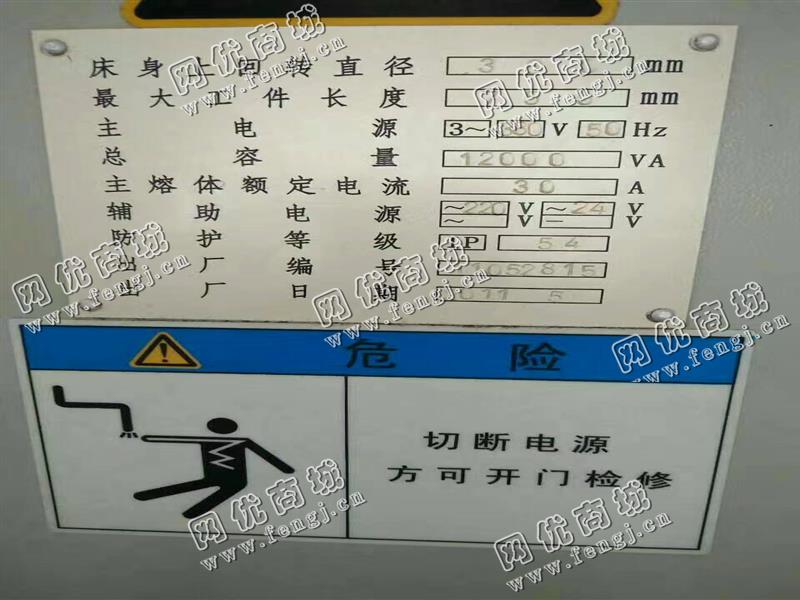 床身上回转直径 3 mm
最大工件长度 mm
主电源 3~ V 50 Hz
总容量 12000 VA
主熔体额定电流 30 A
辅助电源 ~220 V ~24 V
~ V – V
防护等级 IP 54
出厂编号 1052815
出厂日期 011 5
危险
切断电源
方可开门检修
网优商城
www.fengj.cn
网优商城
www.fengj.cn
网优商城
www.fengj.cn
网优商城
www.fengj.cn
网优商城
www.fengj.cn
网优商城
www.fengj.cn
网优商城
www.fengj.cn